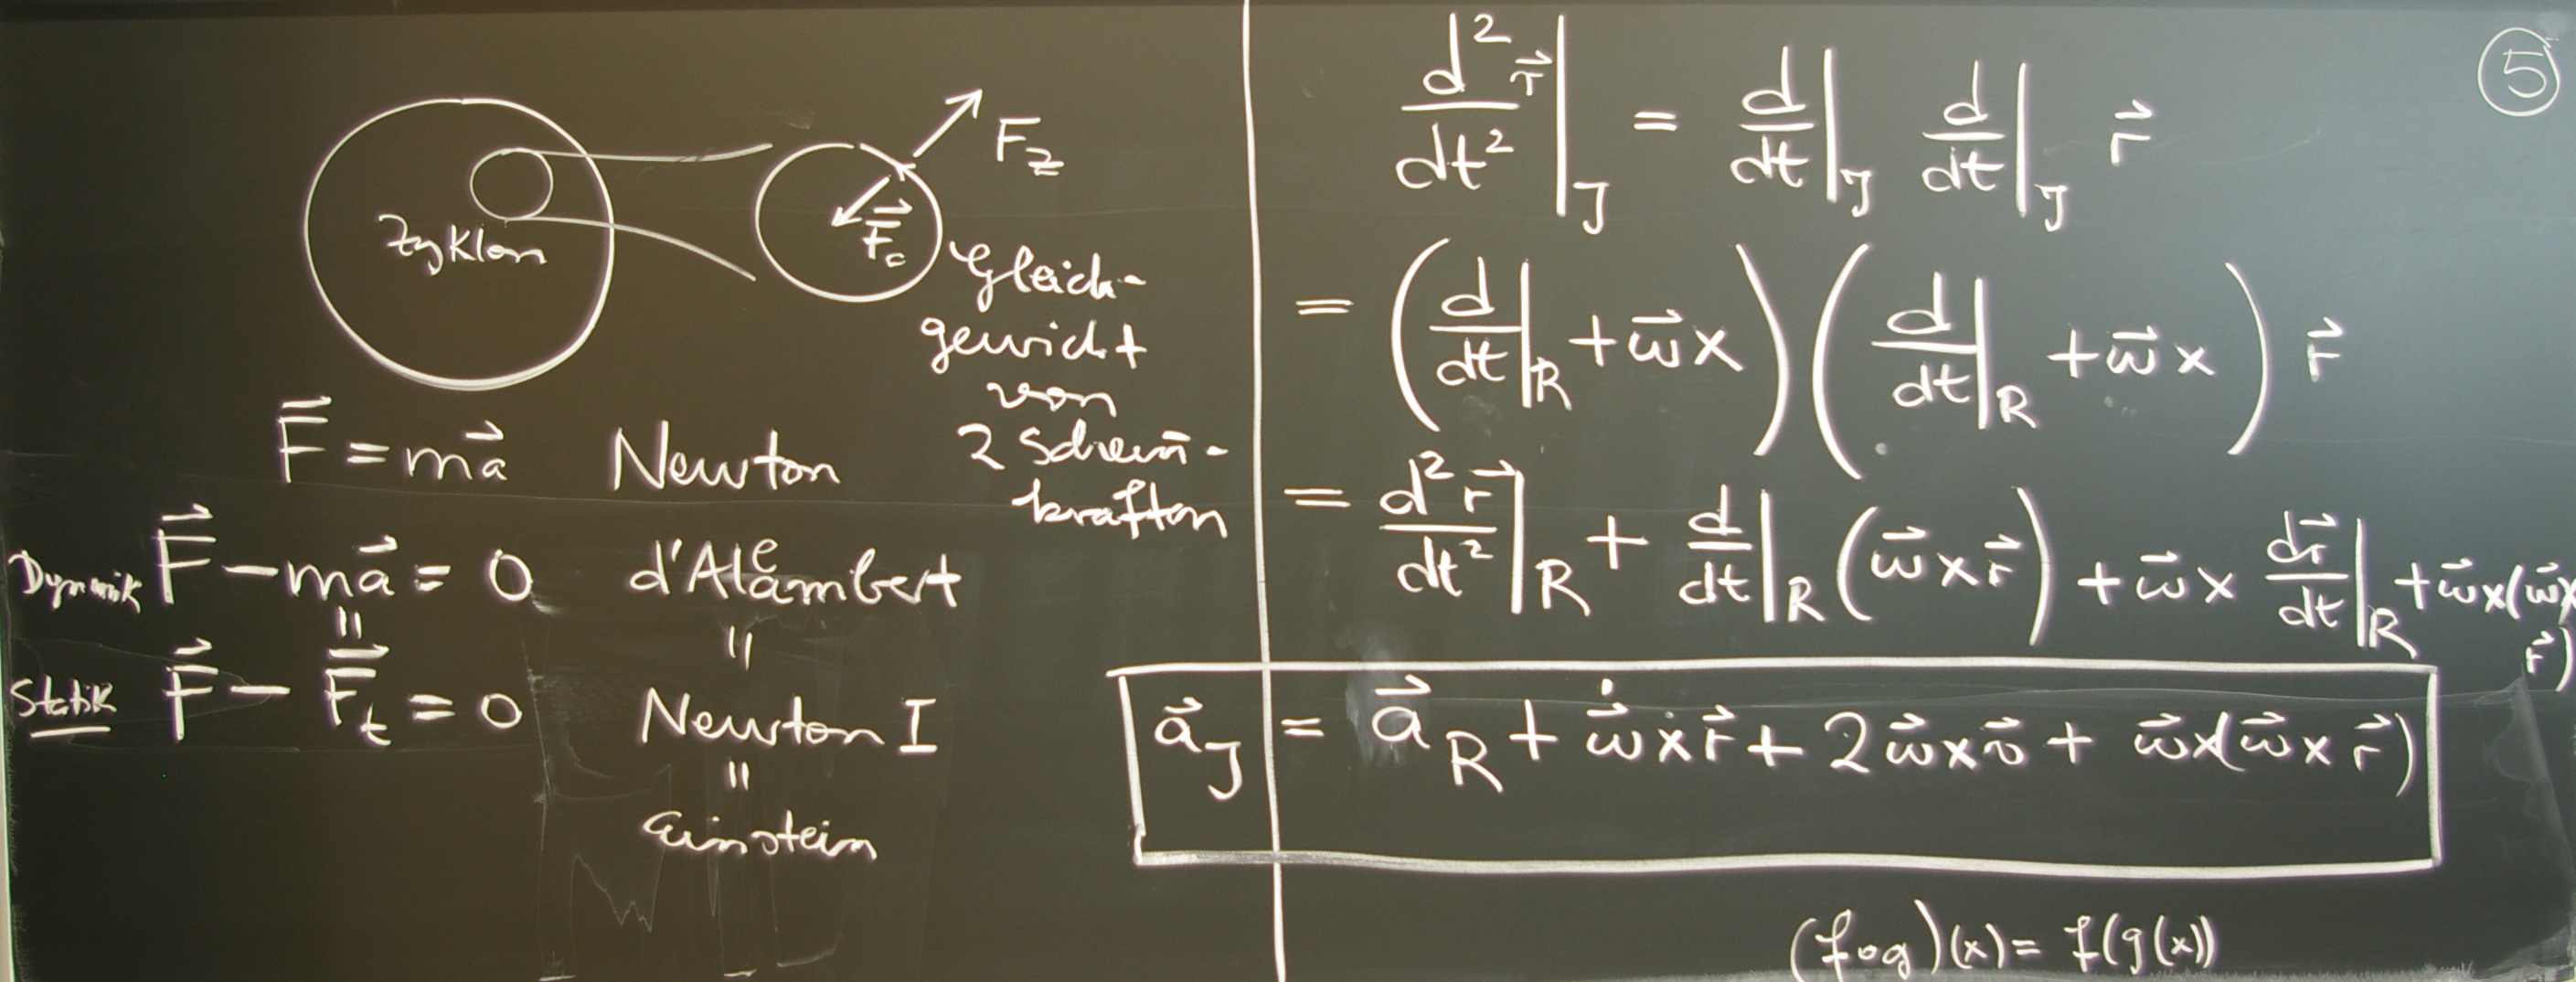 Zyklon
F_Z
F⃗_c
Gleich-
gewicht
von
2 Schein-
kräften
F⃗ = ma⃗ Newton
Dynamik F⃗ - ma⃗ = 0 d'Alembert
=
=
Statik F⃗ - F⃗_t = 0 Newton I
=
Einstein
5
d²r⃗/dt²|_J = d/dt|_J d/dt|_J r⃗
= (d/dt|_R + ω⃗ x)(d/dt|_R + ω⃗ x) r⃗
= d²r⃗/dt²|_R + d/dt|_R (ω⃗ x r⃗) + ω⃗ x dr⃗/dt|_R + ω⃗ x (ω⃗ x r⃗)
a⃗_J = a⃗_R + ω⃗̇ x r⃗ + 2ω⃗ x v⃗ + ω⃗ x (ω⃗ x r⃗)
(f∘g)(x) = f(g(x))